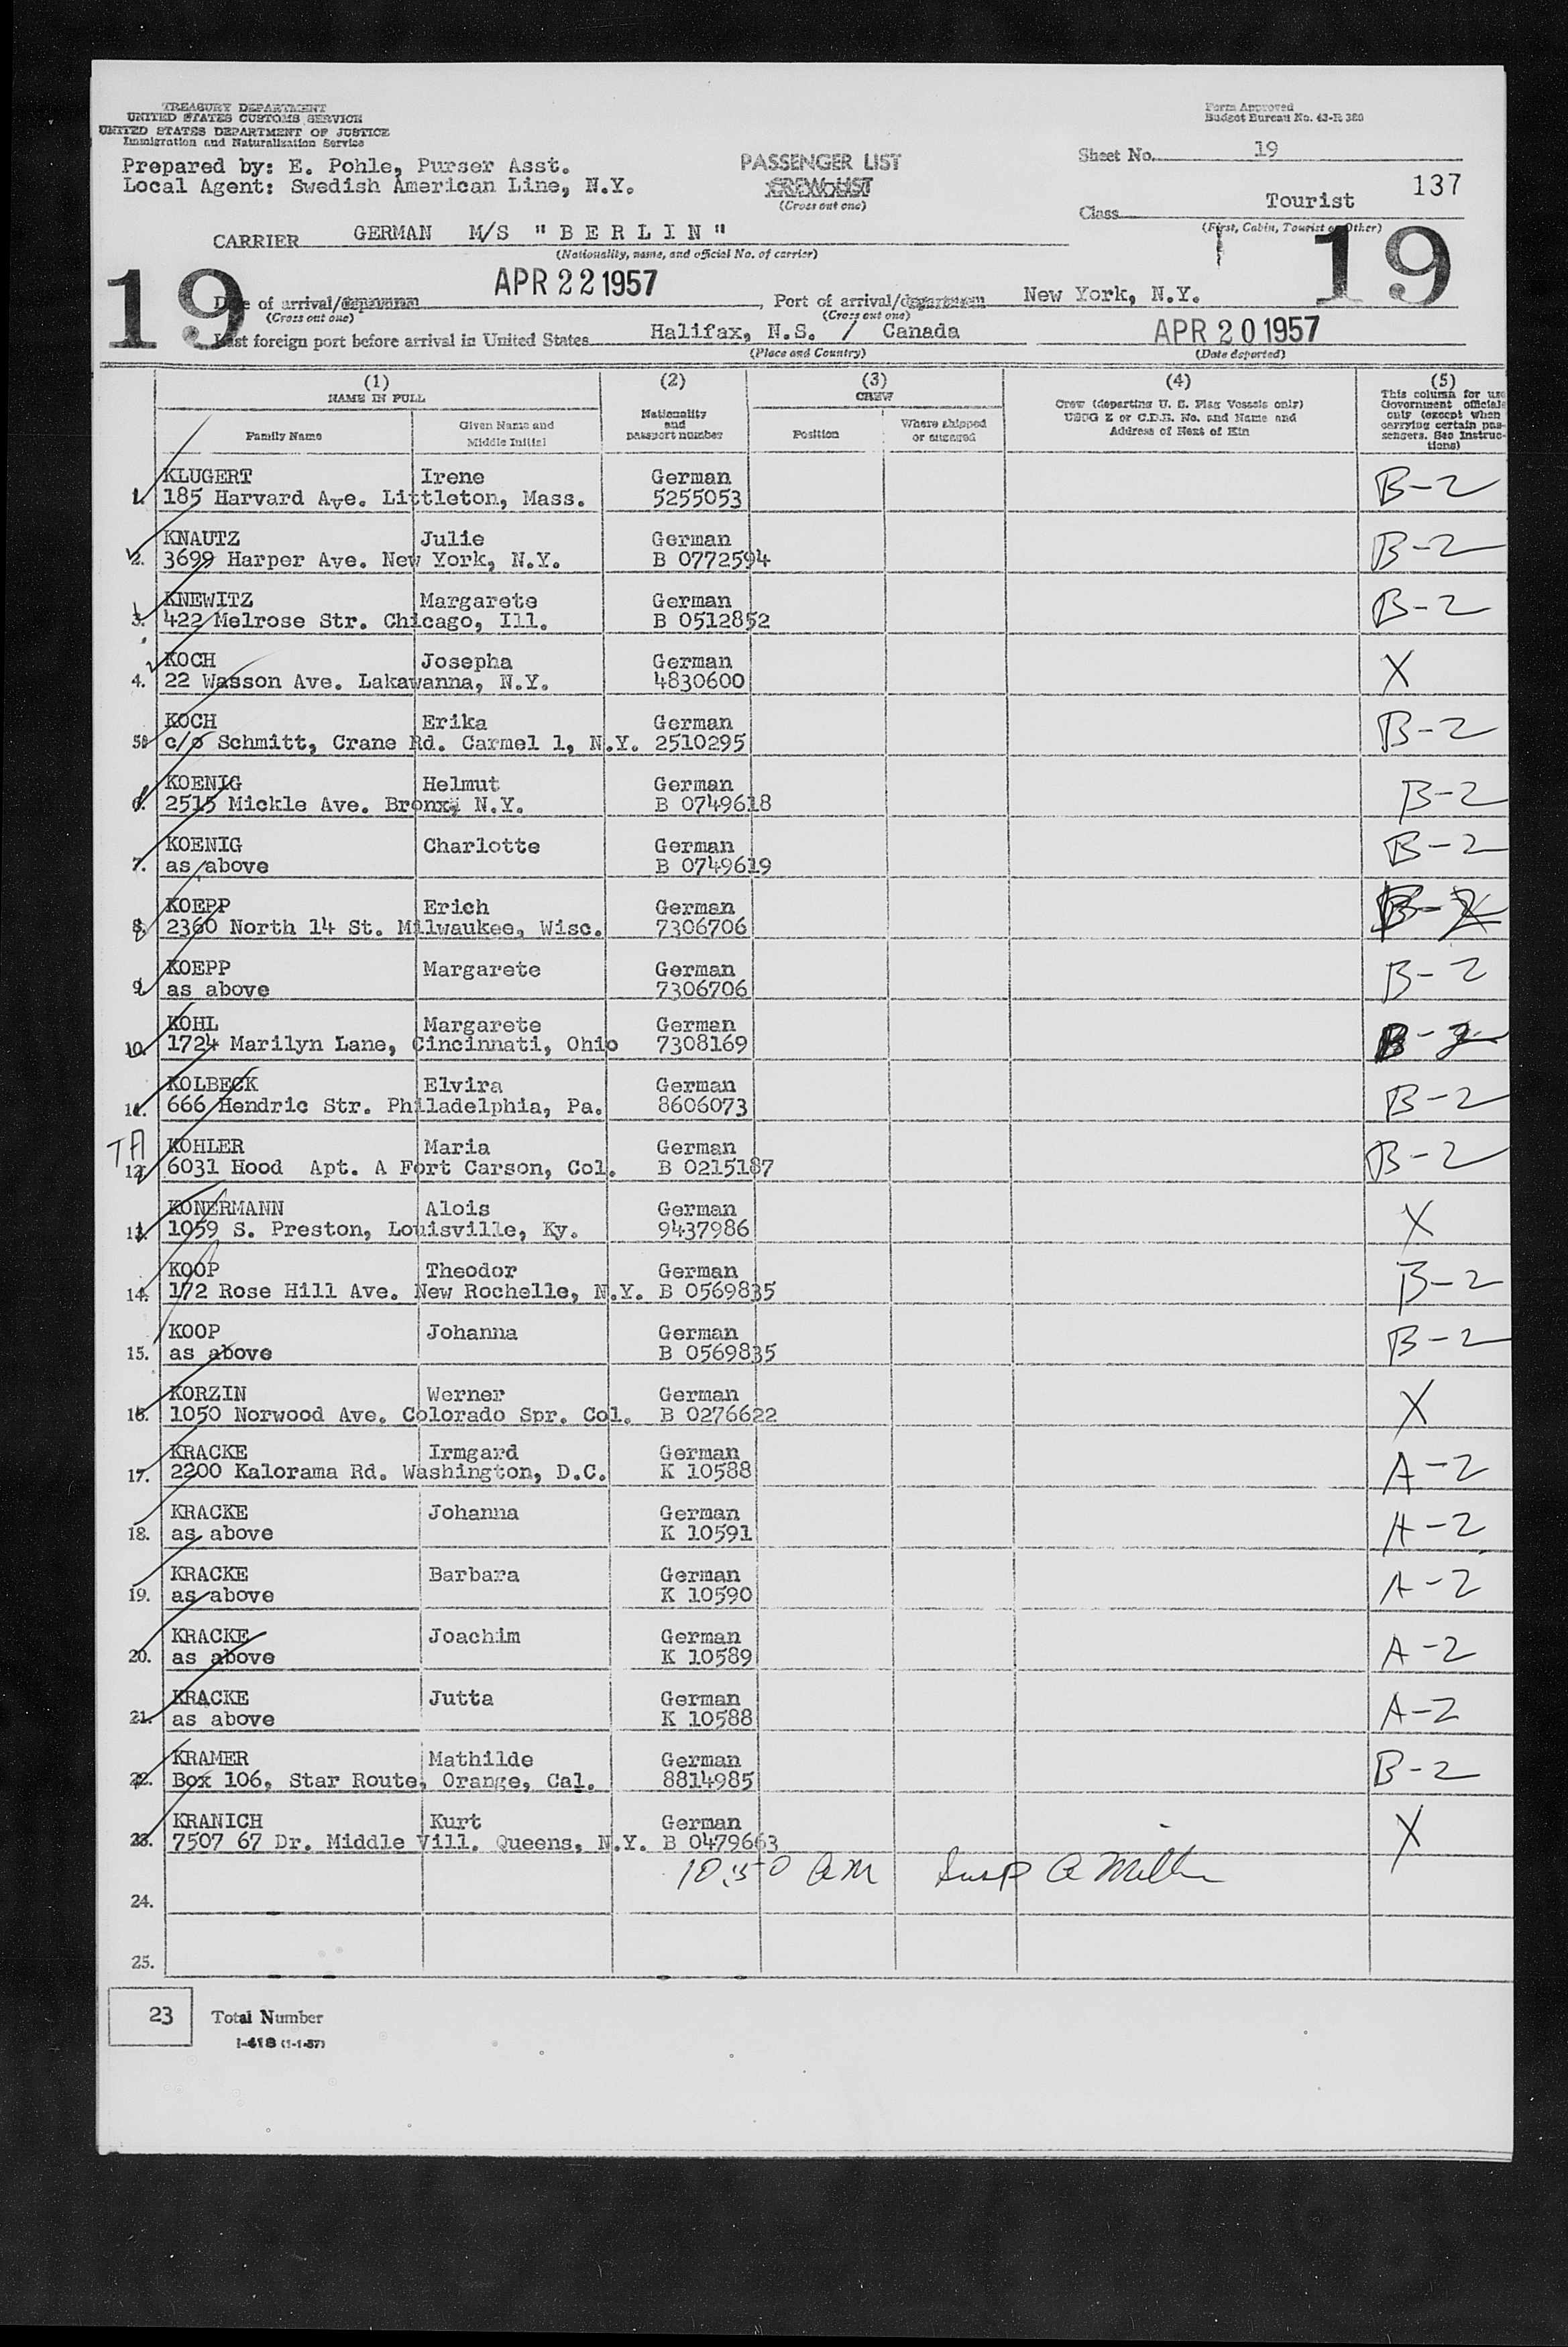 TREASURY DEPARTMENT
UNITED STATES CUSTOMS SERVICE
UNITED STATES DEPARTMENT OF JUSTICE
Immigration and Naturalization Service
Form Approved
Budget Bureau No. 43-R 380
Prepared by: E. Pohle, Purser Asst.
Local Agent: Swedish American Line, N.Y.
PASSENGER LIST
CREW LIST
(Cross out one)
Sheet No. 19
137
Class Tourist
(First, Cabin, Tourist or Other)
CARRIER GERMAN M/S "BERLIN"
(Nationality, name, and official No. of carrier)
19
19
Date of arrival/departure APR 22 1957, Port of arrival/departure New York, N.Y.
(Cross out one) (Cross out one)
Last foreign port before arrival in United States Halifax, N.S. / Canada APR 20 1957
(Place and Country) (Date departed)
(1) (2) (3) (4) (5)
NAME IN FULL
Family Name
Given Name and Middle Initial
Nationality and passport number
CREW
Position
Where shipped or engaged
Crew (departing U. S. Flag Vessels only)
USCG Z or C.D.B. No. and Name and
Address of Next of Kin
This column for use
Government officials
only (except when
carrying certain pas-
sengers. See Instruc-
tions)
1. KLUGERT Irene German B-2
185 Harvard Ave. Littleton, Mass. 5255053
2. KNAUTZ Julie German B-2
3699 Harper Ave. New York, N.Y. B 0772594
3. KNEWITZ Margarete German B-2
422 Melrose Str. Chicago, Ill. B 0512852
4. KOCH Josepha German X
22 Wasson Ave. Lakawanna, N.Y. 4830600
5. KOCH Erika German B-2
c/o Schmitt, Crane Rd. Carmel 1, N.Y. 2510295
6. KOENIG Helmut German B-2
2515 Mickle Ave. Bronx, N.Y. B 0749618
7. KOENIG Charlotte German B-2
as above B 0749619
8. KOEPP Erich German B-2
2360 North 14 St. Milwaukee, Wisc. 7306706
9. KOEPP Margarete German B-2
as above 7306706
10. KOHL Margarete German B-2
1724 Marilyn Lane, Cincinnati, Ohio 7308169
11. KOLBECK Elvira German B-2
666 Hendric Str. Philadelphia, Pa. 8606073
TA
12. KOHLER Maria German B-2
6031 Hood Apt. A Fort Carson, Col. B 0215187
13. KONERMANN Alois German X
1059 S. Preston, Louisville, Ky. 9437986
14. KOOP Theodor German B-2
172 Rose Hill Ave. New Rochelle, N.Y. B 0569835
15. KOOP Johanna German B-2
as above B 0569835
16. KORZIN Werner German X
1050 Norwood Ave. Colorado Spr. Col. B 0276622
17. KRACKE Irmgard German A-2
2200 Kalorama Rd. Washington, D.C. K 10588
18. KRACKE Johanna German A-2
as above K 10591
19. KRACKE Barbara German A-2
as above K 10590
20. KRACKE Joachim German A-2
as above K 10589
21. KRACKE Jutta German A-2
as above K 10588
22. KRAMER Mathilde German B-2
Box 106, Star Route, Orange, Cal. 8814985
23. KRANICH Kurt German X
7507 67 Dr. Middle Vill. Queens, N.Y. B 0479663
10:50 AM Insp
24.
25.
23 Total Number
I-418 (1-1-57)